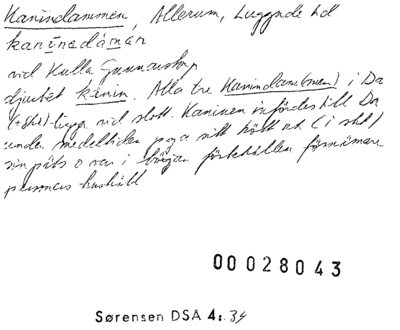 Kanindammen, Allerum, Luggude hd
kanīnedámar
vid Kulla Gunnarstorp
djuret kanin. Alla tre Kanindam(men) i Da
(+Skå) ligga vid slott. Kaninen infördes till Da
under medeltiden pga sitt kött och (i sht)
sin päls o var i början förbehållen förnämare
personers hushåll
00028043
Sørensen DSA 4: 34